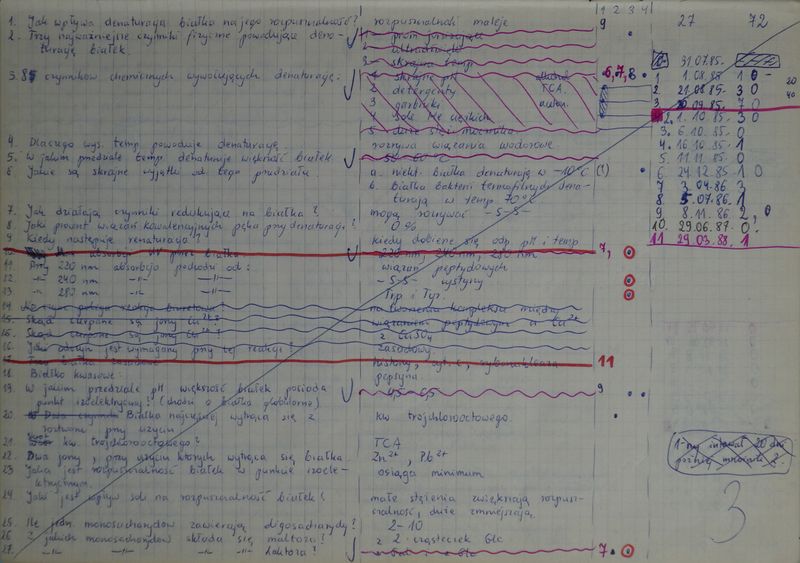 1. Jak wpływa denaturacja białka na jego rozpuszczalność? rozpuszczalność maleje 9
2. Trzy najważniejsze czynniki fizyczne powodujące dena- 1
turację białek. 2
3 skrajna temp
3. 5 czynników chemicznych wywołujących denaturację: 1 skrajne pH 6,7,8
2 detergenty TCA
3 garbniki
4 sole Me ciężkich
5 duże stęż. mocznika
4. Dlaczego wys. temp. powoduje denaturację rozrywa wiązania wodorowe
5. W jakim przedziale temp. denaturuje większość białek 50-60°C
6 Jakie są skrajne wyjątki od tego przedziału a. niekt. białka denaturują w -10°C (1)
b. białka bakterii termofilnych dena-
turują w temp. 70°C
7. Jak działają czynniki redukujące na białka? mogą rozrywać -S-S-
8. Jaki procent wiązań kowalencyjnych pęka przy denaturacji? 0%
9. Kiedy następuje renaturacja? kiedy dobierze się odp. pH i temp
10 UV przez białka 220 nm, 240 nm, 280 nm 7,
11 Przy 220 nm absorbcja pochodzi od: wiązań peptydowych
12 -"- 240 nm -"- -S-S- cystyny
13 -"- 280 nm -"- Trp i Tyr.
14. Na czym polega reakcja biuretowa? na tworzeniu kompleksu między
15. Skąd czerpane są jony Cu²⁺? wiązaniem peptydowym a Cu²⁺
15. Skąd czerpane są jony Cu²⁺? z CuSO₄
16. Jaki odczyn jest wymagany przy tej reakcji? zasadowy
17. Trzy białka zasadowe histony, cyt. c, rybonukleaza 11
18. Białko kwasowe: pepsyna
19. W jakim przedziale pH większość białek posiada 4,5-6,5 9
punkt izoelektryczny? (chodzi o białka globularne)
20. Białka najczęściej wytrąca się z kw trójchlorooctowego
roztworu przy użyciu
21. kw. trójchlorooctowego? TCA
22. Dwa jony, przy użyciu których wytrąca się białka Zn²⁺, Pb²⁺
23 Jaka jest rozpuszczalność białek w punkcie izoele- osiąga minimum
ktrycznym.
24. Jaki jest wpływ soli na rozpuszczalność białek? małe stężenia zwiększają rozpusz-
czalność, duże zmniejszają
25. Ile jedn. monosacharydów zawierają oligosacharydy? 2-10
26 Z jakich monosacharydów składa się maltoza? z 2 cząsteczek Glc
27. -"- -"- -"- -"- laktoza? 7
1 2 3 4
27 72
31.07.85-
1 1.08.85 1 0 -
2 21.08.85- 3 0 20
3 20.09.85. 7 0 40
2. 1.10.85. 3 0
3. 6.10.85. 0
4. 16.10.85. 1
5. 11.11.85 0
6 24.12.85 1 0
7 3.04.86 3
8 5.07.86. 1
9 8.11.86 2, 0
10. 29.06.87. 0
11 29.03.88. 1
1-ny interwał 20 dni
później mnożnik 2.
3